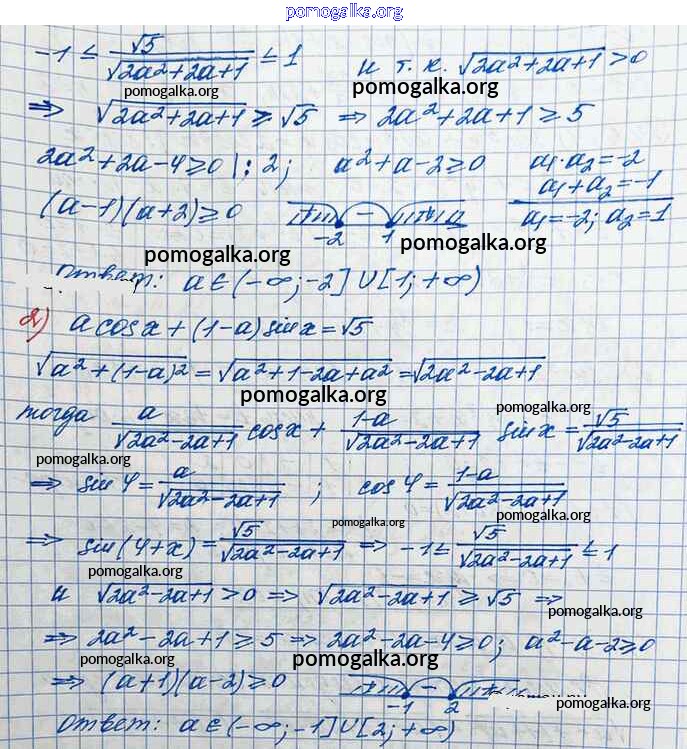 pomogalka.org
-1 ≤ √5/√(2a²+2a+1) ≤ 1 и т.к. √(2a²+2a+1) > 0
pomogalka.org pomogalka.org
⇒ √(2a²+2a+1) ≥ √5 ⇒ 2a²+2a+1 ≥ 5
pomogalka.org
2a²+2a-4 ≥ 0 |:2; a²+a-2 ≥ 0 a₁·a₂ = -2
a₁+a₂ = -1
(a-1)(a+2) ≥ 0 + - + -2 1 a₁ = -2; a₂ = 1
pomogalka.org pomogalka.org
Ответ: a ∈ (-∞; -2] ∪ [1; +∞)
pomogalka.org
2) a cos x + (1-a) sin x = √5
√(a²+(1-a)²) = √(a²+1-2a+a²) = √(2a²-2a+1)
pomogalka.org
тогда a/√(2a²-2a+1) cos x + (1-a)/√(2a²-2a+1) sin x = √5/√(2a²-2a+1)
pomogalka.org
pomogalka.org
⇒ sin φ = a/√(2a²-2a+1) ; cos φ = (1-a)/√(2a²-2a+1)
pomogalka.org
pomogalka.org
⇒ sin(φ+x) = √5/√(2a²-2a+1) ⇒ -1 ≤ √5/√(2a²-2a+1) ≤ 1
pomogalka.org
и √(2a²-2a+1) > 0 ⇒ √(2a²-2a+1) ≥ √5 ⇒
pomogalka.org
⇒ 2a²-2a+1 ≥ 5 ⇒ 2a²-2a-4 ≥ 0; a²-a-2 ≥ 0
pomogalka.org pomogalka.org
⇒ (a+1)(a-2) ≥ 0 - -1 2
pomogalka.org
Ответ: a ∈ (-∞; -1] ∪ [2; +∞)
pomogalka.org